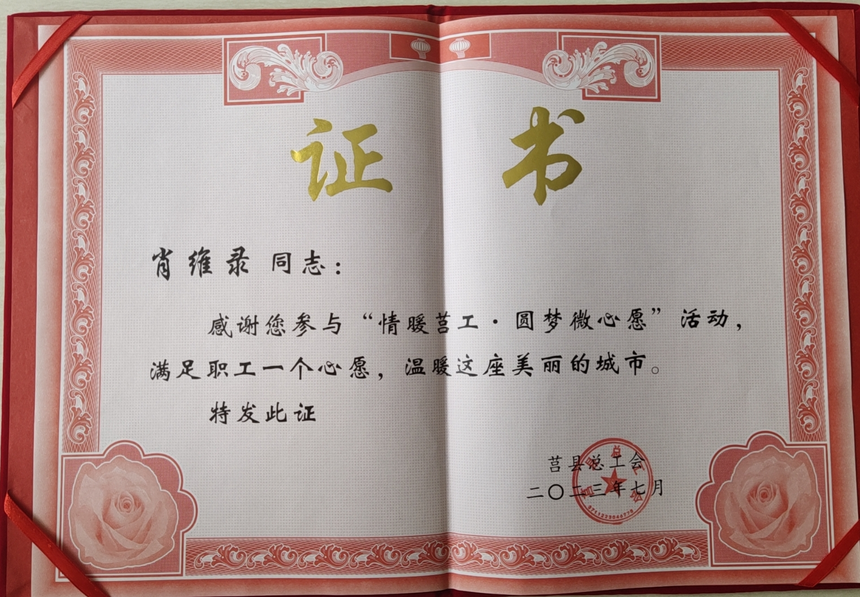 证书
肖维录 同志：
感谢您参与“情暖莒工·圆梦微心愿”活动，
满足职工一个心愿，温暖这座美丽的城市。
特发此证
莒县总工会
二〇二三年七月